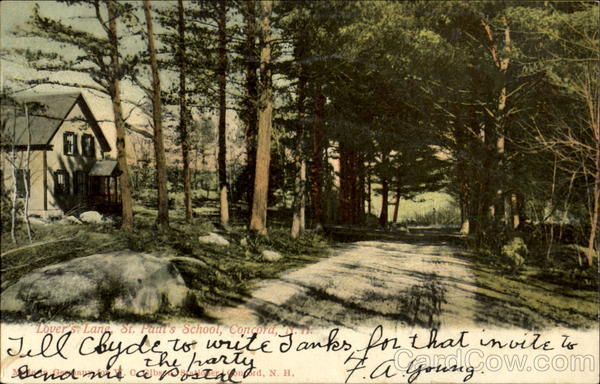 Lover's Lane, St. Paul's School, Concord, N. H.
Tell Clyde to write Tanks for that invite to
the party
Send me a Postal F. A. Young.
Concord, N. H.
CardCow.com